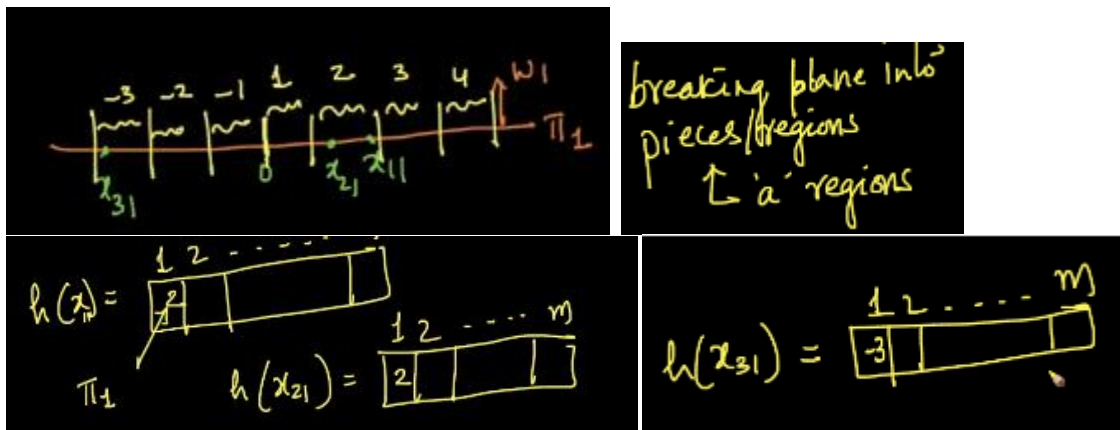 -3 -2 -1 1 2 3 4 W1
π1
0 x21 x11
x31
breaking plane into
pieces/regions
'a' regions
1 2 - - - - - -
h(x11) = 2
π1
1 2 - - - - m
h(x21) = 2
1 2 - - - - m
h(x31) = -3